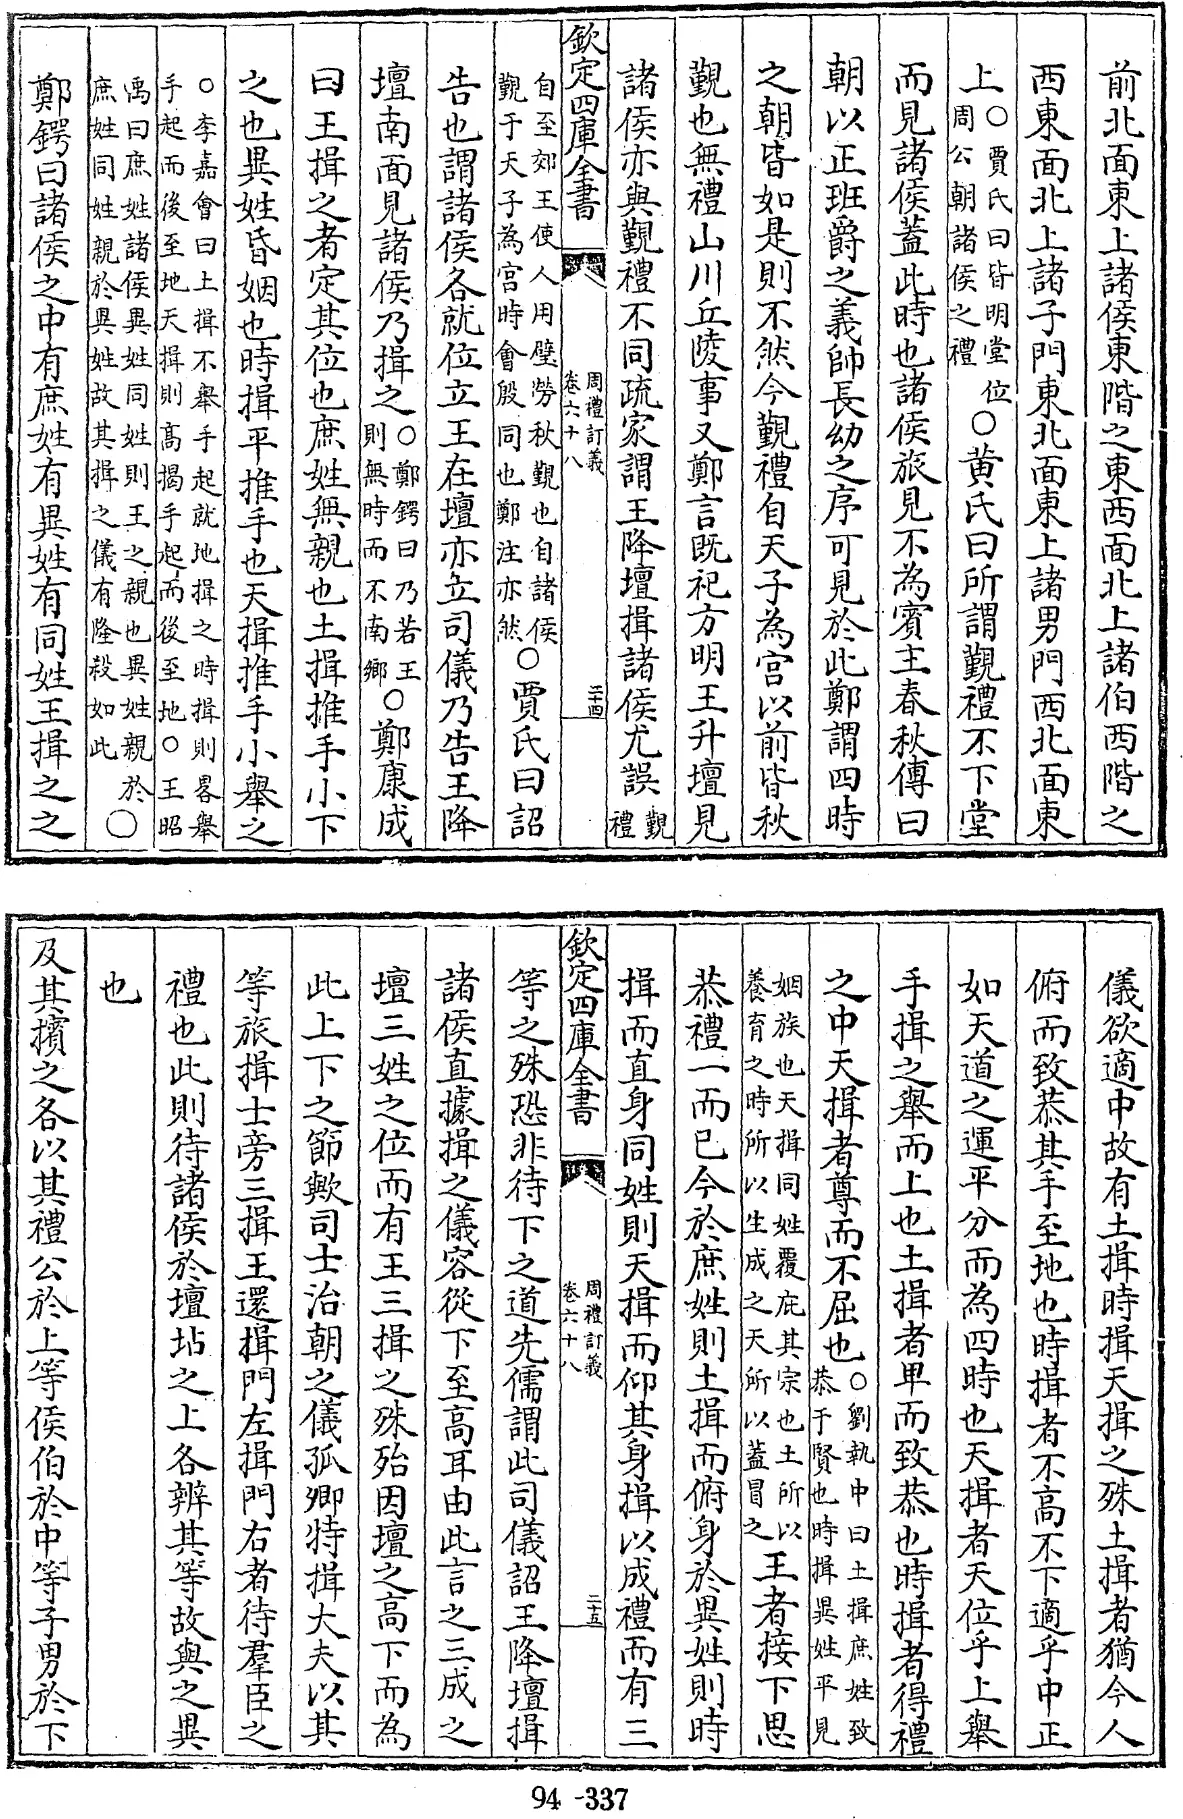 前北面東上諸侯東階之東西面北上諸伯西階之
西東面北上諸子門東北面東上諸男門西北面東
上○賈氏曰皆明堂位周公朝諸侯之禮○黄氏曰所謂覲禮不下堂
而見諸侯葢此時也諸侯旅見不為賓主春秋傳曰
朝以正班爵之義帥長幼之序可見於此鄭謂四時
之朝皆如是則不然今覲禮自天子為宫以前皆秋
覲也無禮山川丘陵事又鄭言既祀方明王升壇見
諸侯亦與覲禮不同疏家謂王降壇揖諸侯尤誤覲禮
欽定四庫全書
周禮訂義
卷六十八
二十四
自至郊王使人用璧勞秋覲也自諸侯
覲于天子為宫時會殷同也鄭注亦然○賈氏曰詔
告也謂諸侯各就位立王在壇亦立司儀乃告王降
壇南面見諸侯乃揖之○鄭鍔曰乃若王則無時而不南鄉○鄭康成
曰王揖之者定其位也庶姓無親也土揖推手小下
之也異姓昏姻也時揖平推手也天揖推手小舉之
○李嘉會曰土揖不舉手起就地揖之時揖則畧舉
手起而後至地天揖則高揭手起而後至地○王昭
禹曰庶姓諸侯異姓同姓則王之親也異姓親於
庶姓同姓親於異姓故其揖之儀有隆殺如此○
鄭鍔曰諸侯之中有庶姓有異姓有同姓王揖之之
儀欲適中故有土揖時揖天揖之殊土揖者猶今人
俯而致恭其手至地也時揖者不高不下適乎中正
如天道之運平分而為四時也天揖者天位乎上舉
手揖之舉而上也土揖者卑而致恭也時揖者得禮
之中天揖者尊而不屈也○劉執中曰土揖庶姓致恭于賢也時揖異姓平見
姻族也天揖同姓覆庇其宗也土所以
養育之時所以生成之天所以蓋冒之王者接下思
恭禮一而已今於庶姓則土揖而俯身於異姓則時
揖而直身同姓則天揖而仰其身揖以成禮而有三
欽定四庫全書
周禮訂義
卷六十八
二十五
等之殊恐非待下之道先儒謂此司儀詔王降壇揖
諸侯直據揖之儀容從下至高耳由此言之三成之
壇三姓之位而有王三揖之殊殆因壇之高下而為
此上下之節歟司士治朝之儀孤卿特揖大夫以其
等旅揖士旁三揖王還揖門左揖門右者待羣臣之
禮也此則待諸侯於壇坫之上各辨其等故與之異
也
及其擯之各以其禮公於上等侯伯於中等子男於下
94-337